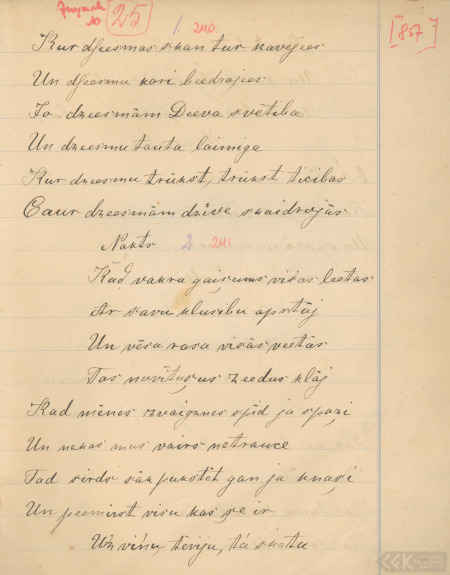 25
1. 240
[857]
Kur dseesmas skan tur kavejees
Un dseesmu kori beedrojees
Jo dzeesmām Deeva svētība
Un dzeesmu tauta laimiga
Kur dzeesmu trūkst, trūkst ticibas
Caur dzeesmām dzīve skaidrojās
Nakts 2. 241
Kad vakra gaisums visas leetas
Ar savu klusibu apstāj
Un vēsa rasa visās veetās
Tos novītuşus zeedus klāj
Kad mēnes zvaigznes spīd ja spoži
Un nekas mus vairs netrauce
Tad sirds sāk pukstēt gan ja knaşi
Un peemirst visu kas şe ir
Uz viņu tēviju, tā skatu